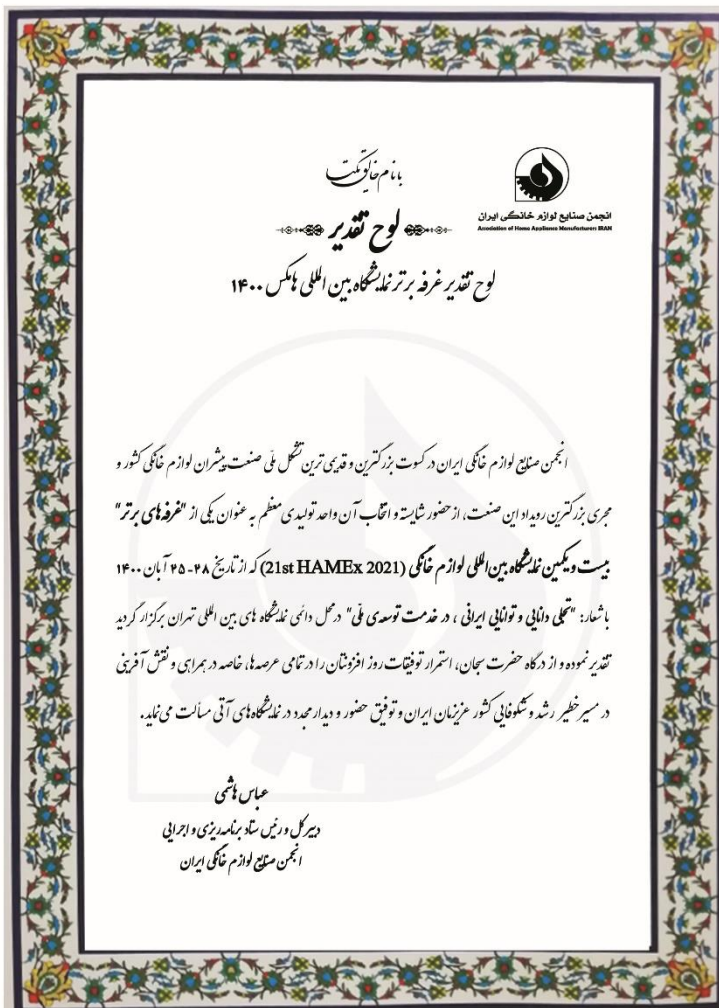 با نام خالق یکتا
انجمن صنایع لوازم خانگی ایران
Association of Home Appliance Manufacturers IRAN
لوح تقدیر
لوح تقدیر غرفه برتر نمایشگاه بین المللی هامکس ۱۴۰۰
انجمن صنایع لوازم خانگی ایران در کسوت بزرگترین و قدیمی ترین تشکل ملّی صنعت پیشران لوازم خانگی کشور و
مجری بزرگترین رویداد این صنعت، از حضور شایسته و انتخاب آن واحد تولیدی معظم به عنوان یکی از "غرفه‌های برتر"
بیست و یکمین نمایشگاه بین‌المللی لوازم خانگی (21st HAMEx 2021) که از تاریخ ۲۸-۲۵ آبان ۱۴۰۰
با شعار: "تجلی دانایی و توانایی ایرانی ، در خدمت توسعه‌ی ملّی" در محل دائمی نمایشگاه های بین المللی تهران برگزار گردید
تقدیر نموده و از درگاه حضرت سبحان، استمرار توفیقات روز افزونتان را در تمامی عرصه‌ها، خاصه در همراهی و نقش آفرینی
در مسیر خطیر رشد و شکوفایی کشور عزیزمان ایران و توفیق حضور و دیدار مجدد در نمایشگاه‌های آتی مسألت می‌نماید.
عباس هاشمی
دبیر کل و رئیس ستاد برنامه‌ریزی و اجرایی
انجمن صنایع لوازم خانگی ایران